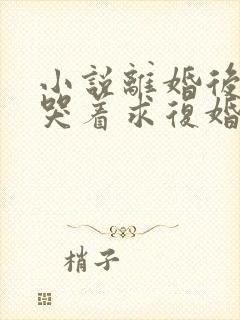 小說離婚後
哭着求復婚
梢子